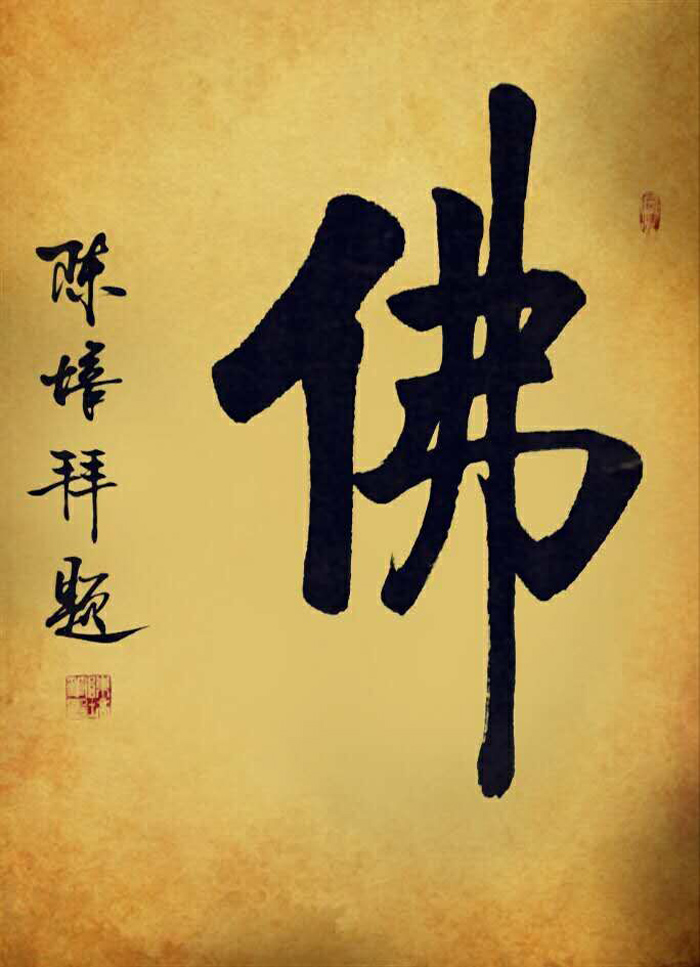 佛
陈培拜题